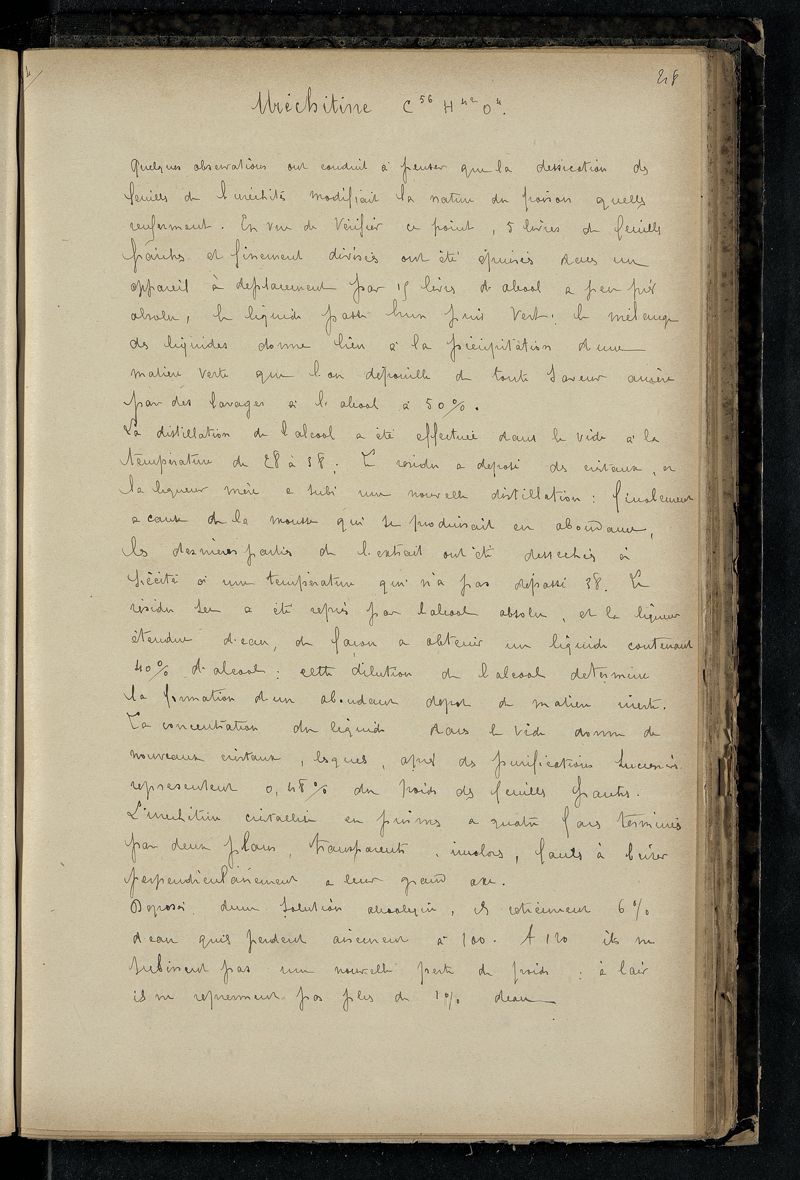 218
Uréchitine C⁵⁶ H⁴² O⁴.
Quelques observations ont conduit à penser que la dessication des
feuilles de l'uréchités modifiait la nature du poison quelles
renferment. En vue de vérifier ce point, 5 livres de feuilles
fraîches et finement divisés ont été épuisés dans un
appareil à deplacement par 15 livres d'alcool a peu près
absolu, le liquide passe brun puis vert: le mélange
des liquides donne lieu à la précipitation d'une
matière verte que l'on dépouille de toute saveur amère
par des lavages à l'alcool à 50%.
La distillation de l'alcool a été effectuée dans le vide à la
température de 28 à 38; le résidu a déposé des cristaux, et
la liqueur mère a subi une nouvelle distillation: finalement
a cause de la mousse qui se produisait en abondance,
les dernières parties de l'extrait ont été dessechés à
siccité à une température qui n'a pas dépassé 38. Le
résidu sec a été repris par l'alcool absolu, et la liqueur
étendue d'eau, de façon a obtenir un liquide contenant
40% d'alcool: cette dilution de l'alcool détermine
la formation d'un abondant depot de matière inerte.
La concentration du liquide dans le vide donne de
nouveaux cristaux, lesquels, après des purifications successives
représentent 0,48% du poids des feuilles fraiches.
L'uréchitine cristallise en prismes a quatre faces terminés
par deux plans, transparents, incolores, faciles à briser
perpendiculairement a leur grand axe.
Déposés d'une solution alcoolique, ils retiennent 6%
d'eau quils perdent aisement à 100. A 120 ils ne
subissent pas une nouvelle perte de poids: à l'air
ils ne reprennent pas plus de 1% d'eau